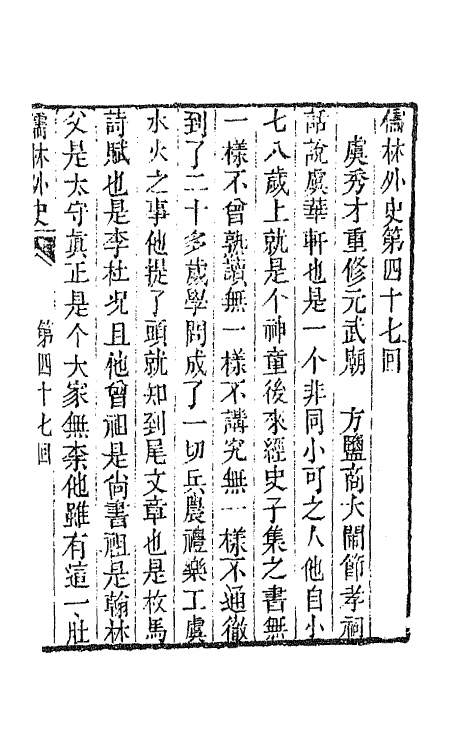 儒林外史第四十七回
虞秀才重修元武廟　方鹽商大鬧節孝祠
話說虞華軒也是一个非同小可之人他自小
七八歲上就是个神童後來經史子集之書無
一樣不曾熟讀無一樣不講究無一樣不通徹
到了二十多歲學問成了一切兵農禮樂工虞
水火之事他提了頭就知到尾文章也是枚馬
詩賦也是李杜况且他曾祖是尙書祖是翰林
父是太守眞正是个大家無柰他雖有這一肚
儒林外史
第四十七回